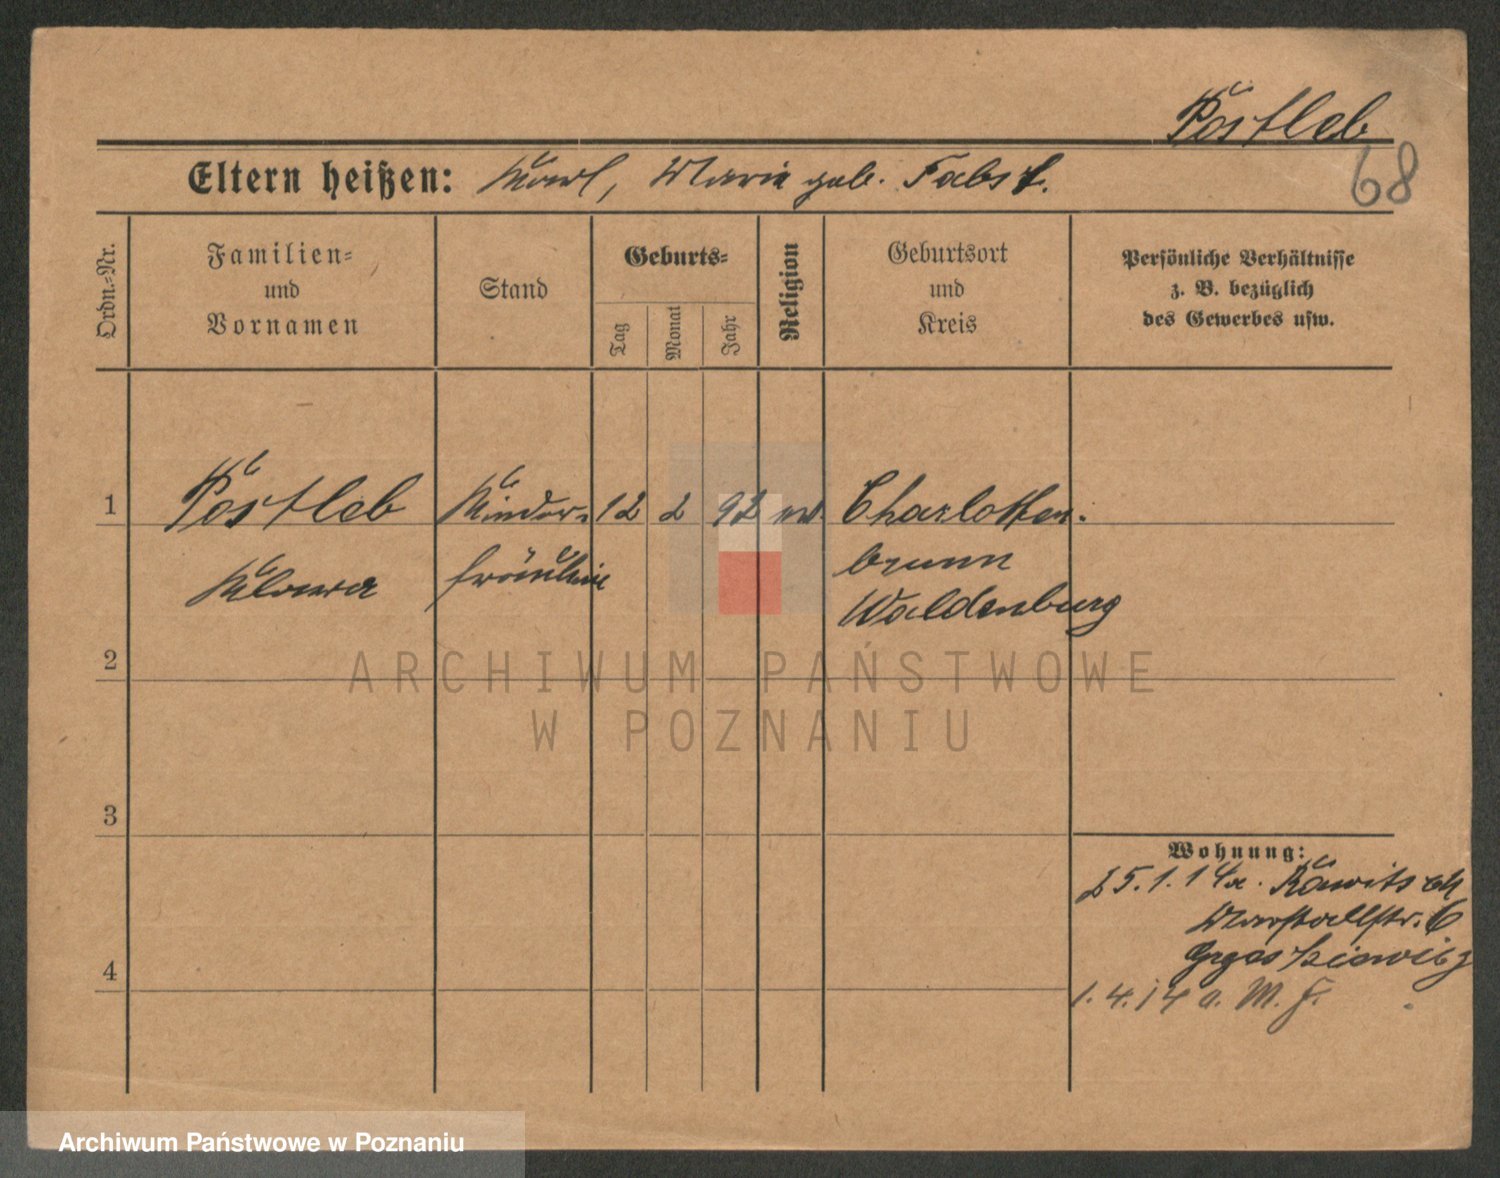 Postleb
68
Eltern heißen: Karl, Maria geb. Fabst.
Ordn.-Nr.
Familien-
und
Vornamen
Stand
Geburts-
Tag
Monat
Jahr
Religion
Geburtsort
und
Kreis
Persönliche Verhältnisse
z. B. bezüglich
des Gewerbes usw.
1
Postleb
Klara
Kinder-
fräulein
12
2
92
ev.
Charlotten-
brunn
Waldenburg
2
3
4
Wohnung:
25.1.14 a. Rawitsch
Marstallstr. 6
1.4.14 a. M. F.
ARCHIWUM PAŃSTWOWE
W POZNANIU
Archiwum Państwowe w Poznaniu